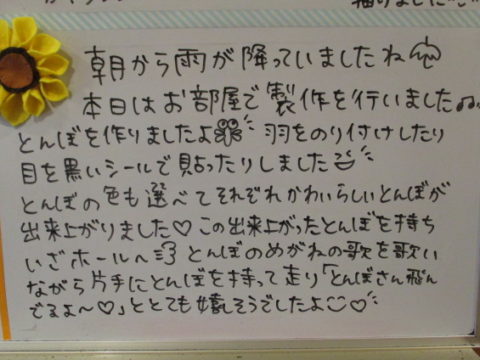 朝から雨が降っていましたね☂
本日はお部屋で製作を行いました♫
とんぼを作りましたよ 羽をのり付けしたり
目を黒いシールで貼ったりしました
とんぼの色も選べてそれぞれかわいらしいとんぼが
出来上がりました♡ この出来上がったとんぼを持ち
いざホールへ とんぼのめがねの歌を歌い
ながら片手にとんぼを持って走り「とんぼさん飛ん
でるよ〜♡」ととても嬉しそうでしたよ♡